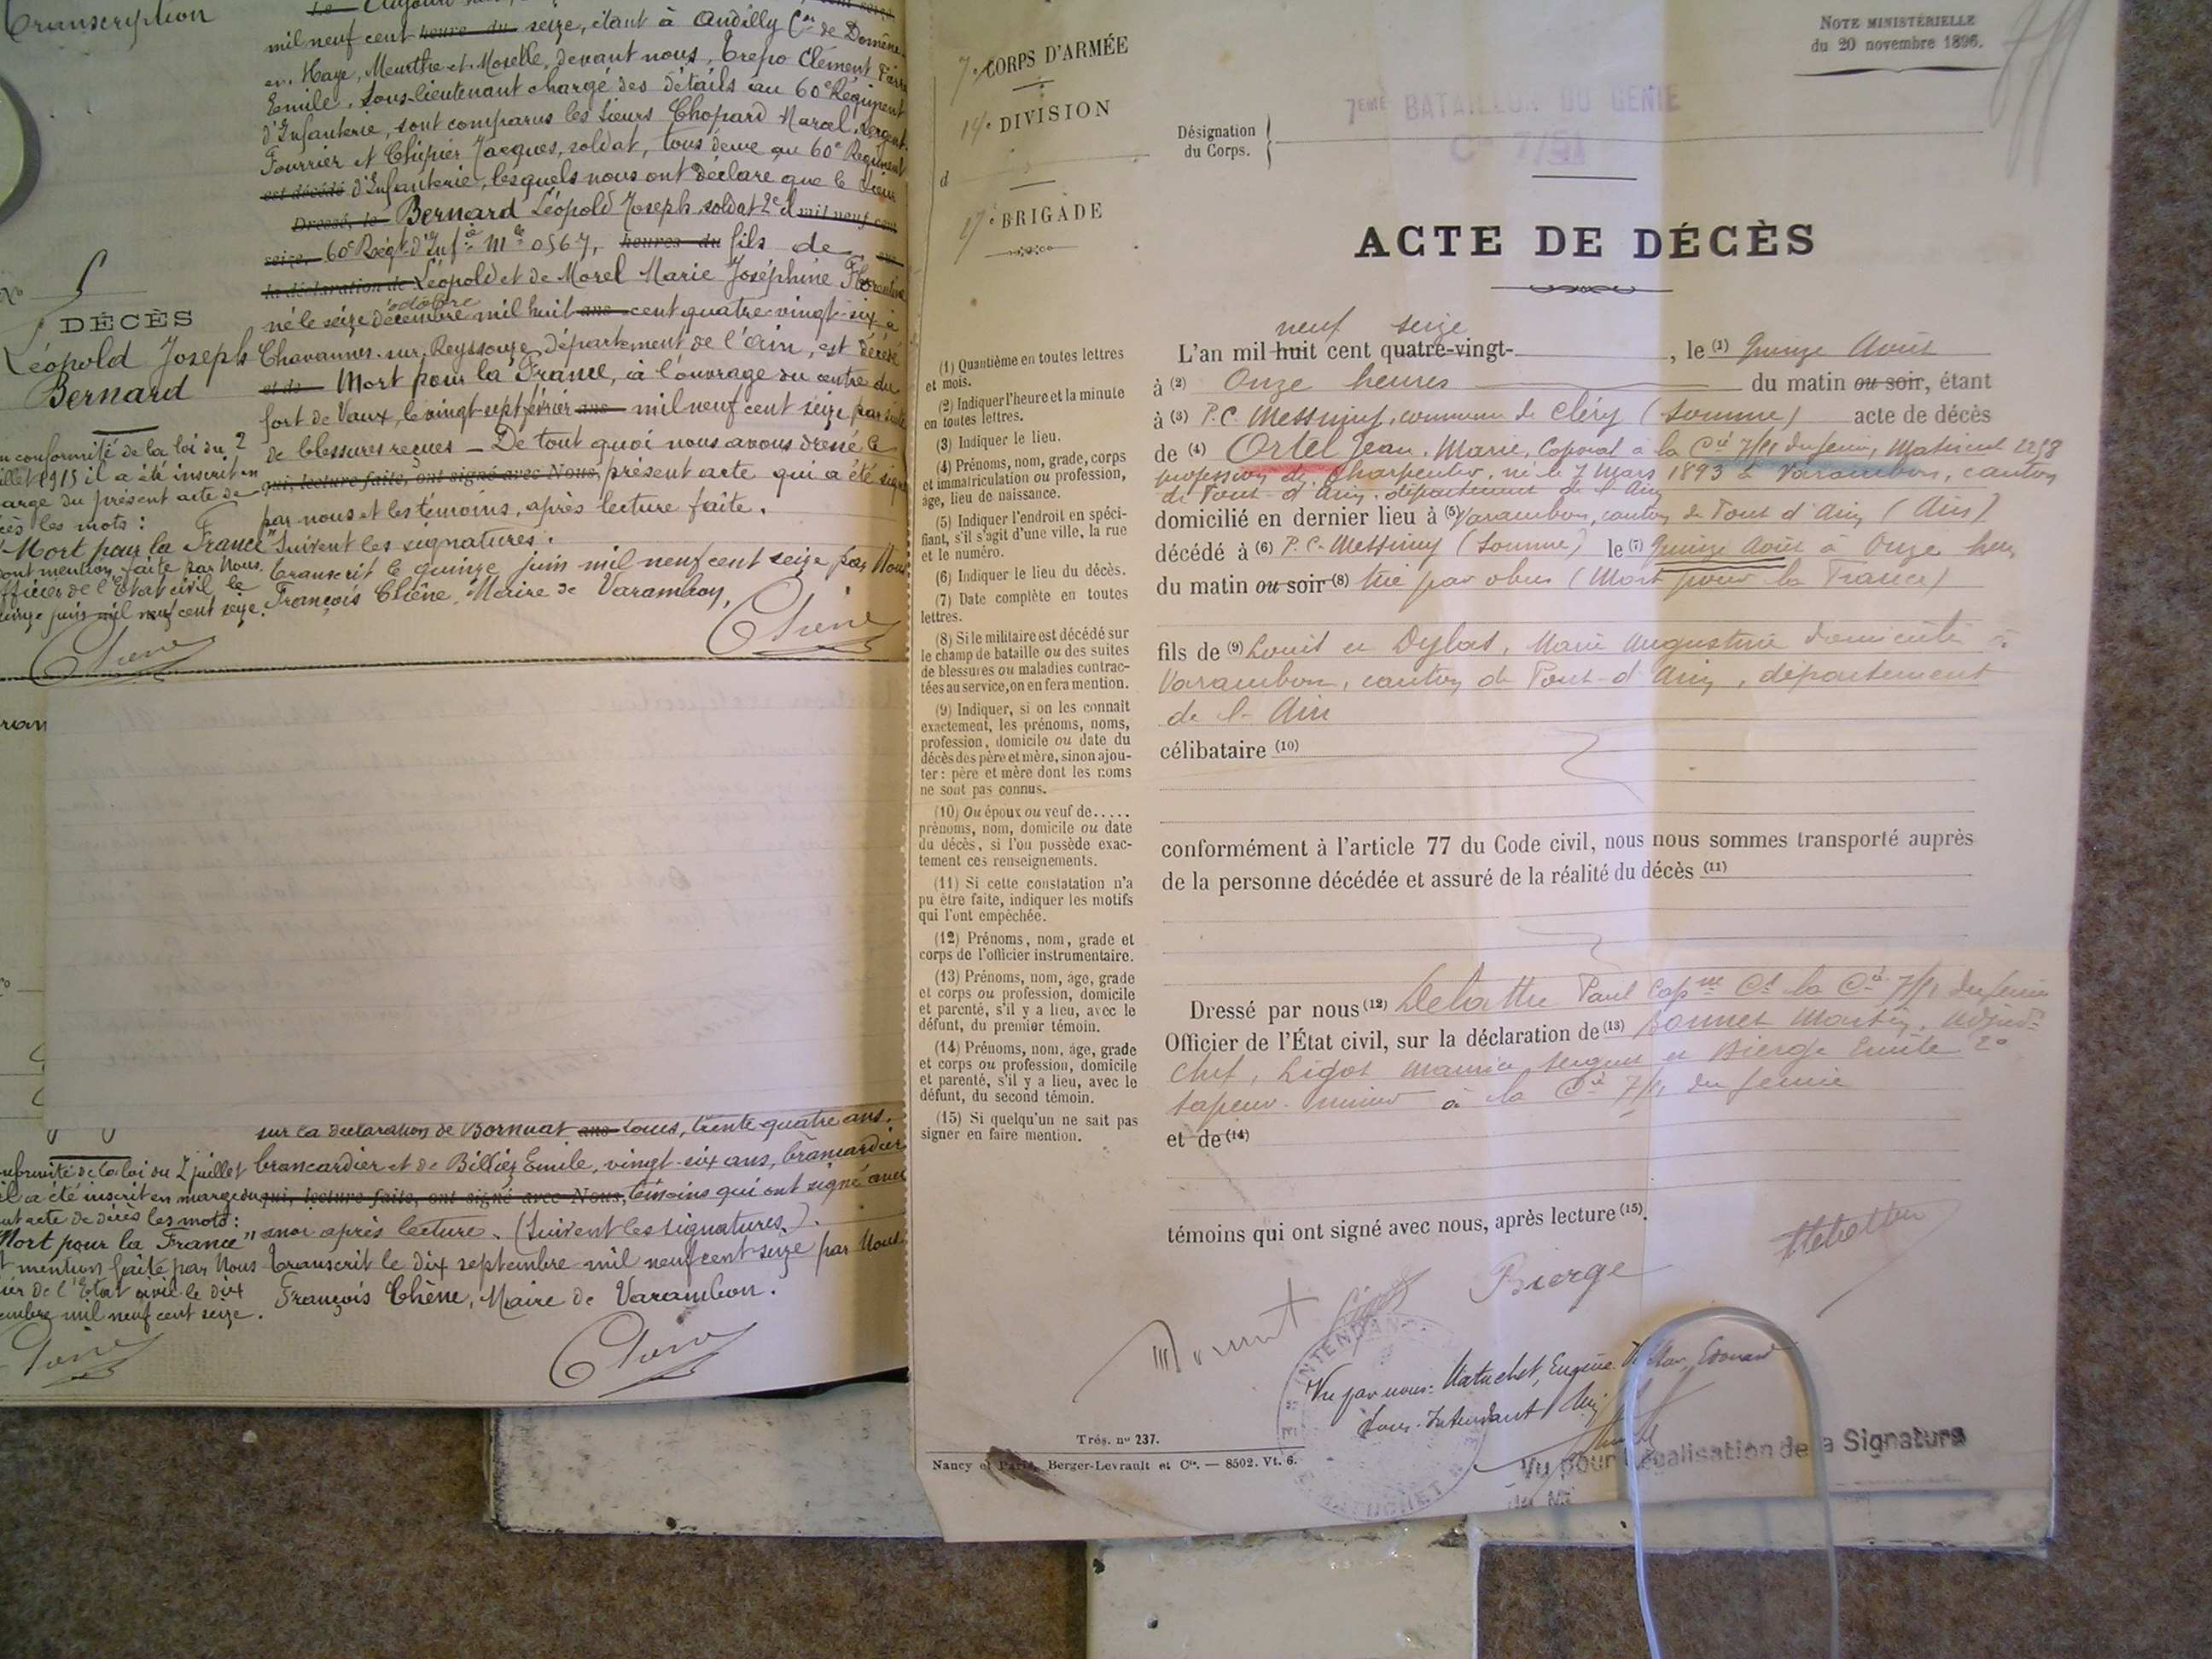 Transcription
mil neuf cent heure du seize, étant à Andilly Con de Domèvre
en Haye, Meurthe et Moselle, devant nous, Crepo Clément
Emile, Sous-lieutenant chargé des détails au 60e Régiment
d'Infanterie, sont comparus les sieurs Chopard Marcel, Sergent
Fourrier et Chipier Jacques, soldat, tous deux au 60e Régiment
est décédé d'Infanterie, lesquels nous ont déclaré que le sieur
Dressé, le Bernard Léopold Joseph, soldat 2e cl mil neuf cent
seize, 60e Régt d'Infie Mle 0567, heures du fils de
la déclaration de Léopold et de Morel Marie Joséphine Florentine
octobre
né le seize décembre mil huit ans cent quatre-vingt-six à
Chavannes-sur-Reyssouze, département de l'Ain, est décédé
et de Mort pour la France, à l'ouvrage du centre du
fort de Vaux, le vingt-sept février ans mil neuf cent seize par suite
de blessures reçues — De tout quoi nous avons dressé le
qui, lecture faite, ont signé avec Nous, présent acte qui a été signé
par nous et les témoins, après lecture faite.
Suivent les signatures.
Transcrit le quinze juin mil neuf cent seize par Nous
François Chêne, Maire de Varambon.
Chêne
No 5
DÉCÈS
Léopold Joseph
Bernard
en conformité de la loi du 2
juillet 1915 il a été inscrit en
marge du présent acte de
décès les mots :
"Mort pour la France"
dont mention faite par Nous
officier de l'Etat civil le
quinze juin mil neuf cent seize.
Chêne
sur la déclaration de Bornuat ans Louis, trente-quatre ans,
brancardier et de Billiez Emile, vingt-six ans, brancardier
qui, lecture faite, ont signé avec Nous, témoins qui ont signé avec
moi après lecture. (Suivent les signatures.).
Transcrit le dix septembre mil neuf cent seize par Nous
François Chêne, Maire de Varambon.
Chêne
conformité de la loi du 2 juillet
il a été inscrit en marge du
présent acte de décès les mots :
"Mort pour la France"
mention faite par Nous
officier de l'Etat civil le dix
septembre mil neuf cent seize.
Chêne
7e CORPS D'ARMÉE
14e DIVISION
d
27e BRIGADE
NOTE MINISTÉRIELLE
du 20 novembre 1896.
Désignation
du Corps.
7EME BATAILLON DU GENIE
Cie 7/51
ACTE DE DÉCÈS
neuf seize
L'an mil huit cent quatre-vingt- , le (1) Quinze Août
à (2) Onze heures du matin ou soir, étant
à (3) P.C. Messimy, commune de Cléry (Somme) acte de décès
de (4) Ortel Jean, Marie, Caporal à la Cie 7/51 du Génie, Matricule 2258
profession de Charpentier, né le 7 Mars 1893 à Varambon, canton
de Pont-d'Ain, département de l'Ain
domicilié en dernier lieu à (5) Varambon, canton de Pont d'Ain (Ain)
décédé à (6) P.C. Messimy (Somme) le (7) Quinze Août à Onze heures
du matin ou soir (8) tué par obus (Mort pour la France)
fils de (9) Louis et Dylas, Marie Augustine domiciliés à
Varambon, canton de Pont-d'Ain, département
de l'Ain
célibataire (10)
conformément à l'article 77 du Code civil, nous nous sommes transporté auprès
de la personne décédée et assuré de la réalité du décès (11)
Dressé par nous (12) Delattre Paul Capne Ct la Cie 7/51 du Génie
Officier de l'État civil, sur la déclaration de (13) Bonnet Martin, Adjudt
chef, Ligot Maurice sergent et Bierge Emile 2e
sapeur-mineur à la Cie 7/51 du Génie
et de (14)
témoins qui ont signé avec nous, après lecture (15).
Bierge
Delattre
Vu par nous: Matuchet, Eugène Victor, Edouard
Sous-Intendant Mre
Vu pour Légalisation de la Signature
(1) Quantième en toutes lettres
et mois.
(2) Indiquer l'heure et la minute
en toutes lettres.
(3) Indiquer le lieu.
(4) Prénoms, nom, grade, corps
et immatriculation ou profession,
âge, lieu de naissance.
(5) Indiquer l'endroit en spéci-
fiant, s'il s'agit d'une ville, la rue
et le numéro.
(6) Indiquer le lieu du décès.
(7) Date complète en toutes
lettres.
(8) Si le militaire est décédé sur
le champ de bataille ou des suites
de blessures ou maladies contrac-
tées au service, on en fera mention.
(9) Indiquer, si on les connaît
exactement, les prénoms, noms,
profession, domicile ou date du
décès des père et mère, sinon ajou-
ter : père et mère dont les noms
ne sont pas connus.
(10) Ou époux ou veuf de.....
prénoms, nom, domicile ou date
du décès, si l'on possède exac-
tement ces renseignements.
(11) Si cette constatation n'a
pu être faite, indiquer les motifs
qui l'ont empêchée.
(12) Prénoms, nom, grade et
corps de l'officier instrumentaire.
(13) Prénoms, nom, âge, grade
et corps ou profession, domicile
et parenté, s'il y a lieu, avec le
défunt, du premier témoin.
(14) Prénoms, nom, âge, grade
et corps ou profession, domicile
et parenté, s'il y a lieu, avec le
défunt, du second témoin.
(15) Si quelqu'un ne sait pas
signer en faire mention.
Trés. no 237.
Nancy et Paris, Berger-Levrault et Cie. — 8502. Vt. 6.